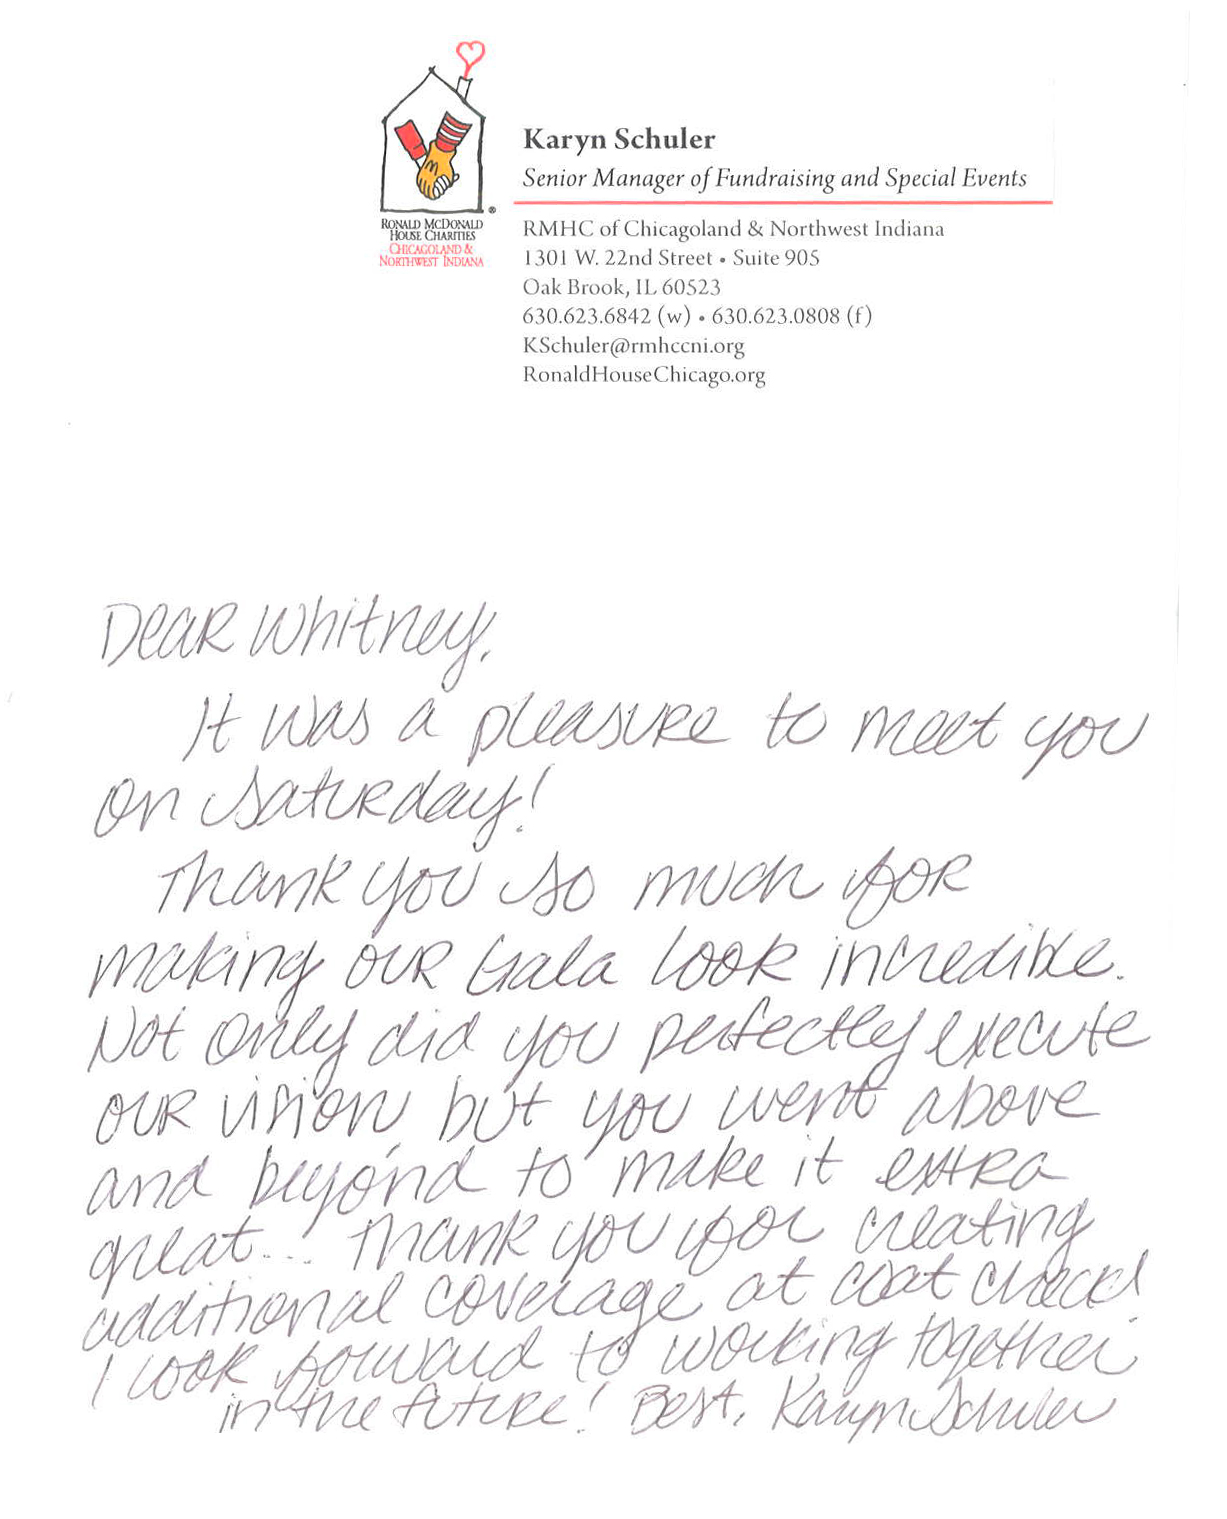 Karyn Schuler
Senior Manager of Fundraising and Special Events
RONALD MCDONALD
HOUSE CHARITIES
CHICAGOLAND &
NORTHWEST INDIANA
®
RMHC of Chicagoland & Northwest Indiana
1301 W. 22nd Street • Suite 905
Oak Brook, IL 60523
630.623.6842 (w) • 630.623.0808 (f)
KSchuler@rmhccni.org
RonaldHouseChicago.org
Dear Whitney,
It was a pleasure to meet you
on Saturday!
Thank you so much for
making our Gala look incredible.
Not only did you perfectly execute
our vision, but you went above
and beyond to make it extra
great... Thank you for creating
additional coverage at coat check!
I look forward to working together
in the future! Best, Karyn Schuler